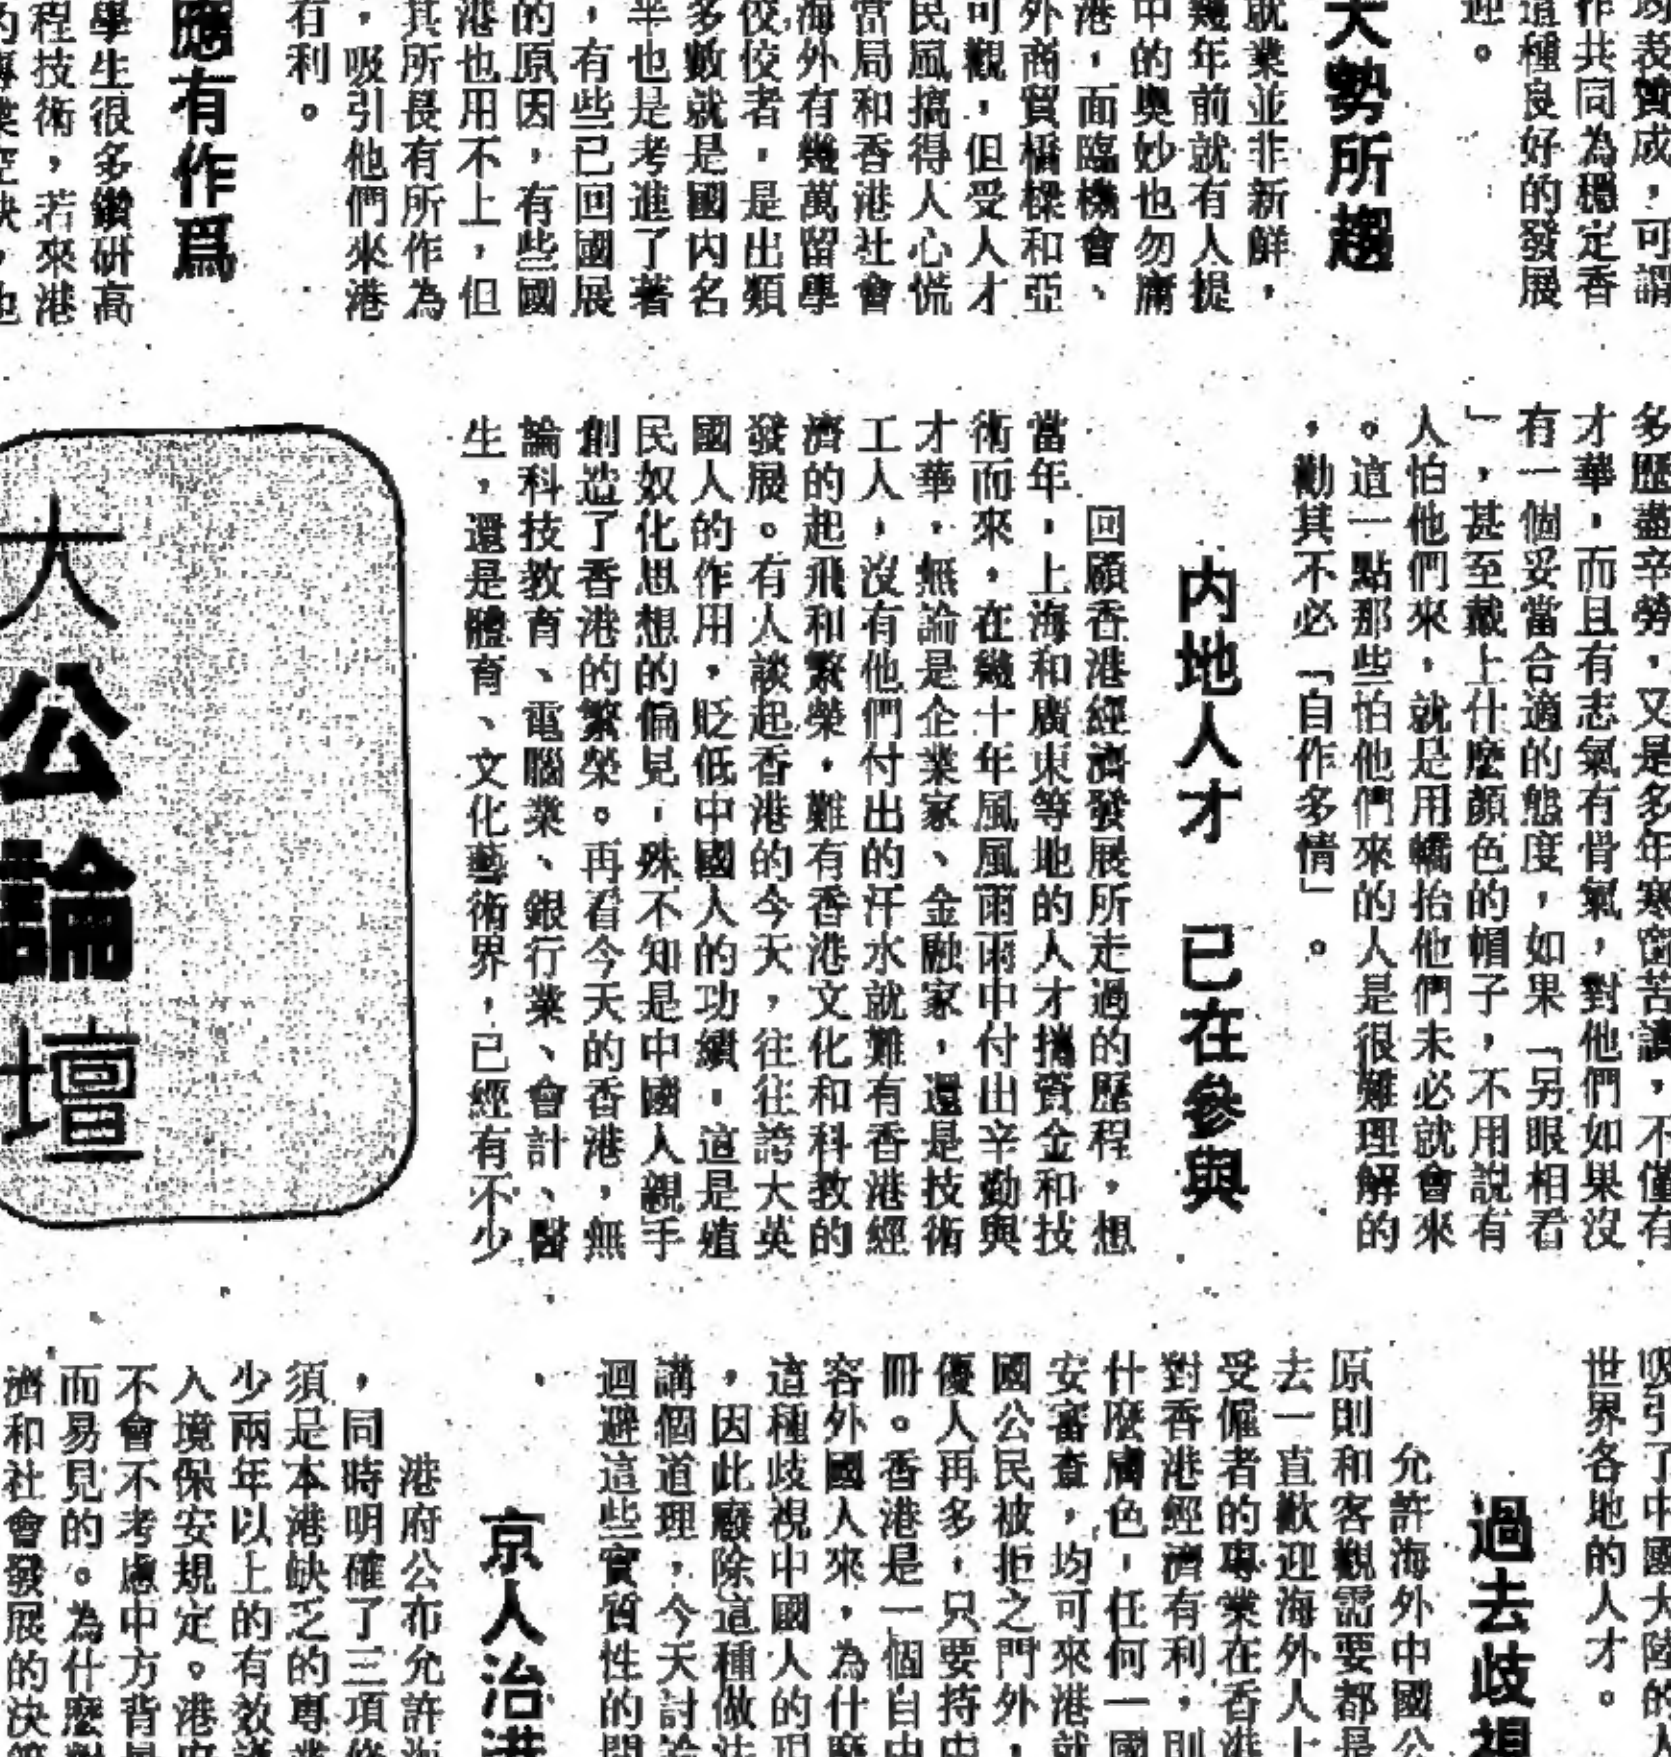 均表贊成，可謂
作共同為穩定香
這種良好的發展
迎。
大勢所趨
就業並非新鮮，
幾年前就有人提
中的奧妙也勿庸
港，面臨機會、
外商貿橋樑和亞
可觀，但受人才
民風搞得人心慌
當局和香港社會
海外有幾萬留學
佼佼者，是出類
多數就是國內名
半也是考進了著
，有些已回國展
的原因，有些國
港也用不上，但
其所長有所作為
，吸引他們來港
有利。
應有作爲
學生很多鑽研高
程技術，若來港
多歷盡辛勞，又是多年寒窗苦讀，不僅有
才華，而且有志氣有骨氣，對他們如果沒
有一個妥當合適的態度，如果「另眼相看
」，甚至戴上什麼顏色的帽子，不用說有
人怕他們來，就是用轎抬他們未必就會來
。這一點那些怕他們來的人是很難理解的
，勸其不必「自作多情」。
内地人才　已在參與
回顧香港經濟發展所走過的歷程，想
當年，上海和廣東等地的人才攜資金和技
術而來，在幾十年風風雨雨中付出辛勤與
才華，無論是企業家、金融家，還是技術
工人，沒有他們付出的汗水就難有香港經
濟的起飛和繁榮，難有香港文化和科教的
發展。有人談起香港的今天，往往誇大英
國人的作用，貶低中國人的功績，這是殖
民奴化思想的偏見，殊不知是中國人親手
創造了香港的繁榮。再看今天的香港，無
論科技教育、電腦業、銀行業、會計、醫
生，還是體育、文化藝術界，已經有不少
大公論壇
吸引了中國大陸的人
世界各地的人才。
過去歧視
允許海外中國公
原則和客觀需要都是
去一直歡迎海外人上
受僱者的專業在香港
對香港經濟有利，則
什麼膚色，任何一國
安審查，均可來港就
國公民被拒之門外，
優人再多，只要持中
冊。香港是一個自由
容外國人來，為什麼
這種歧視中國人的現
，因此廢除這種做法
講個道理，今天討論
迴避這些實質性的問
京人治港
港府公布允許海
，同時明確了三項條
須是本港缺乏的專業
少兩年以上的有效護
入境保安規定。港府
不會不考慮中方背景
而易見的。為什麼對
濟和社會發展的決策